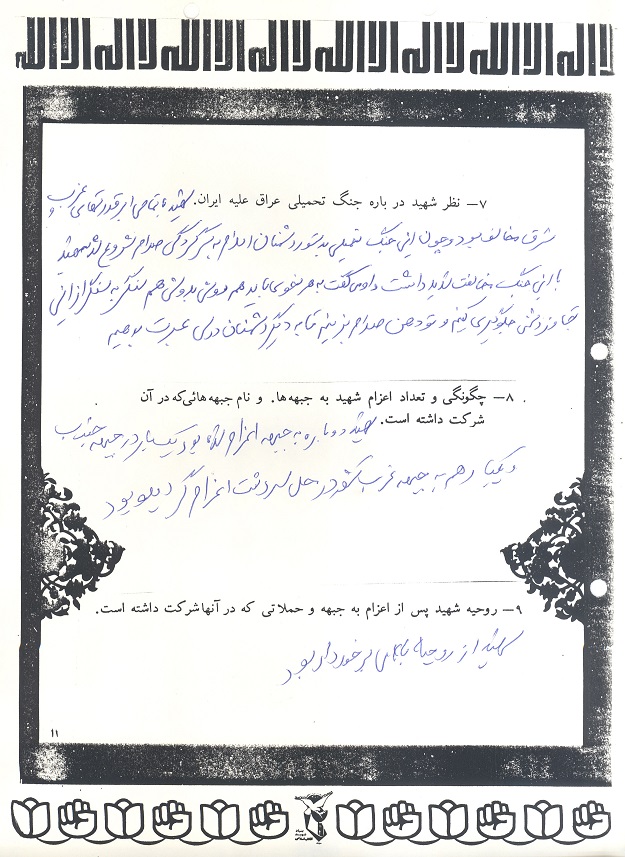 لااله الاالله لااله الاالله لااله الاالله لااله
۷– نظر شهید در باره جنگ تحمیلی عراق علیه ایران. شهید با تمامی ابرقدرتهای غرب و
شرق مخالف بود و چون این جنگ تحمیلی بدستور دشمنان اسلام به سرکردگی صدام شروع شد شهید
با این جنگ مخالفت شدید داشت و او می گفت به هر نحوی باید هم دوش بدوش هم سنگر به سنگر از این
تجاوز دشمن جلوگیری کنیم و تو دهن صدام بزنیم تا به دیگر دشمنان درس عبرت بدهیم
۸– چگونگی و تعداد اعزام شهید به جبهه‌ها. و نام جبهه‌هائی‌که در آن
شرکت داشته است. شهید دوباره به جبهه اعزام شده بود یکبار در جبهه جنوب
و یکبار هم به جبهه غرب کشور در محل سردشت اعزام گردیده بود
۹– روحیه شهید پس از اعزام به جبهه و حملاتی که در آنها شرکت داشته است.
شهید از روحیه بالای برخوردار بود
۱۱